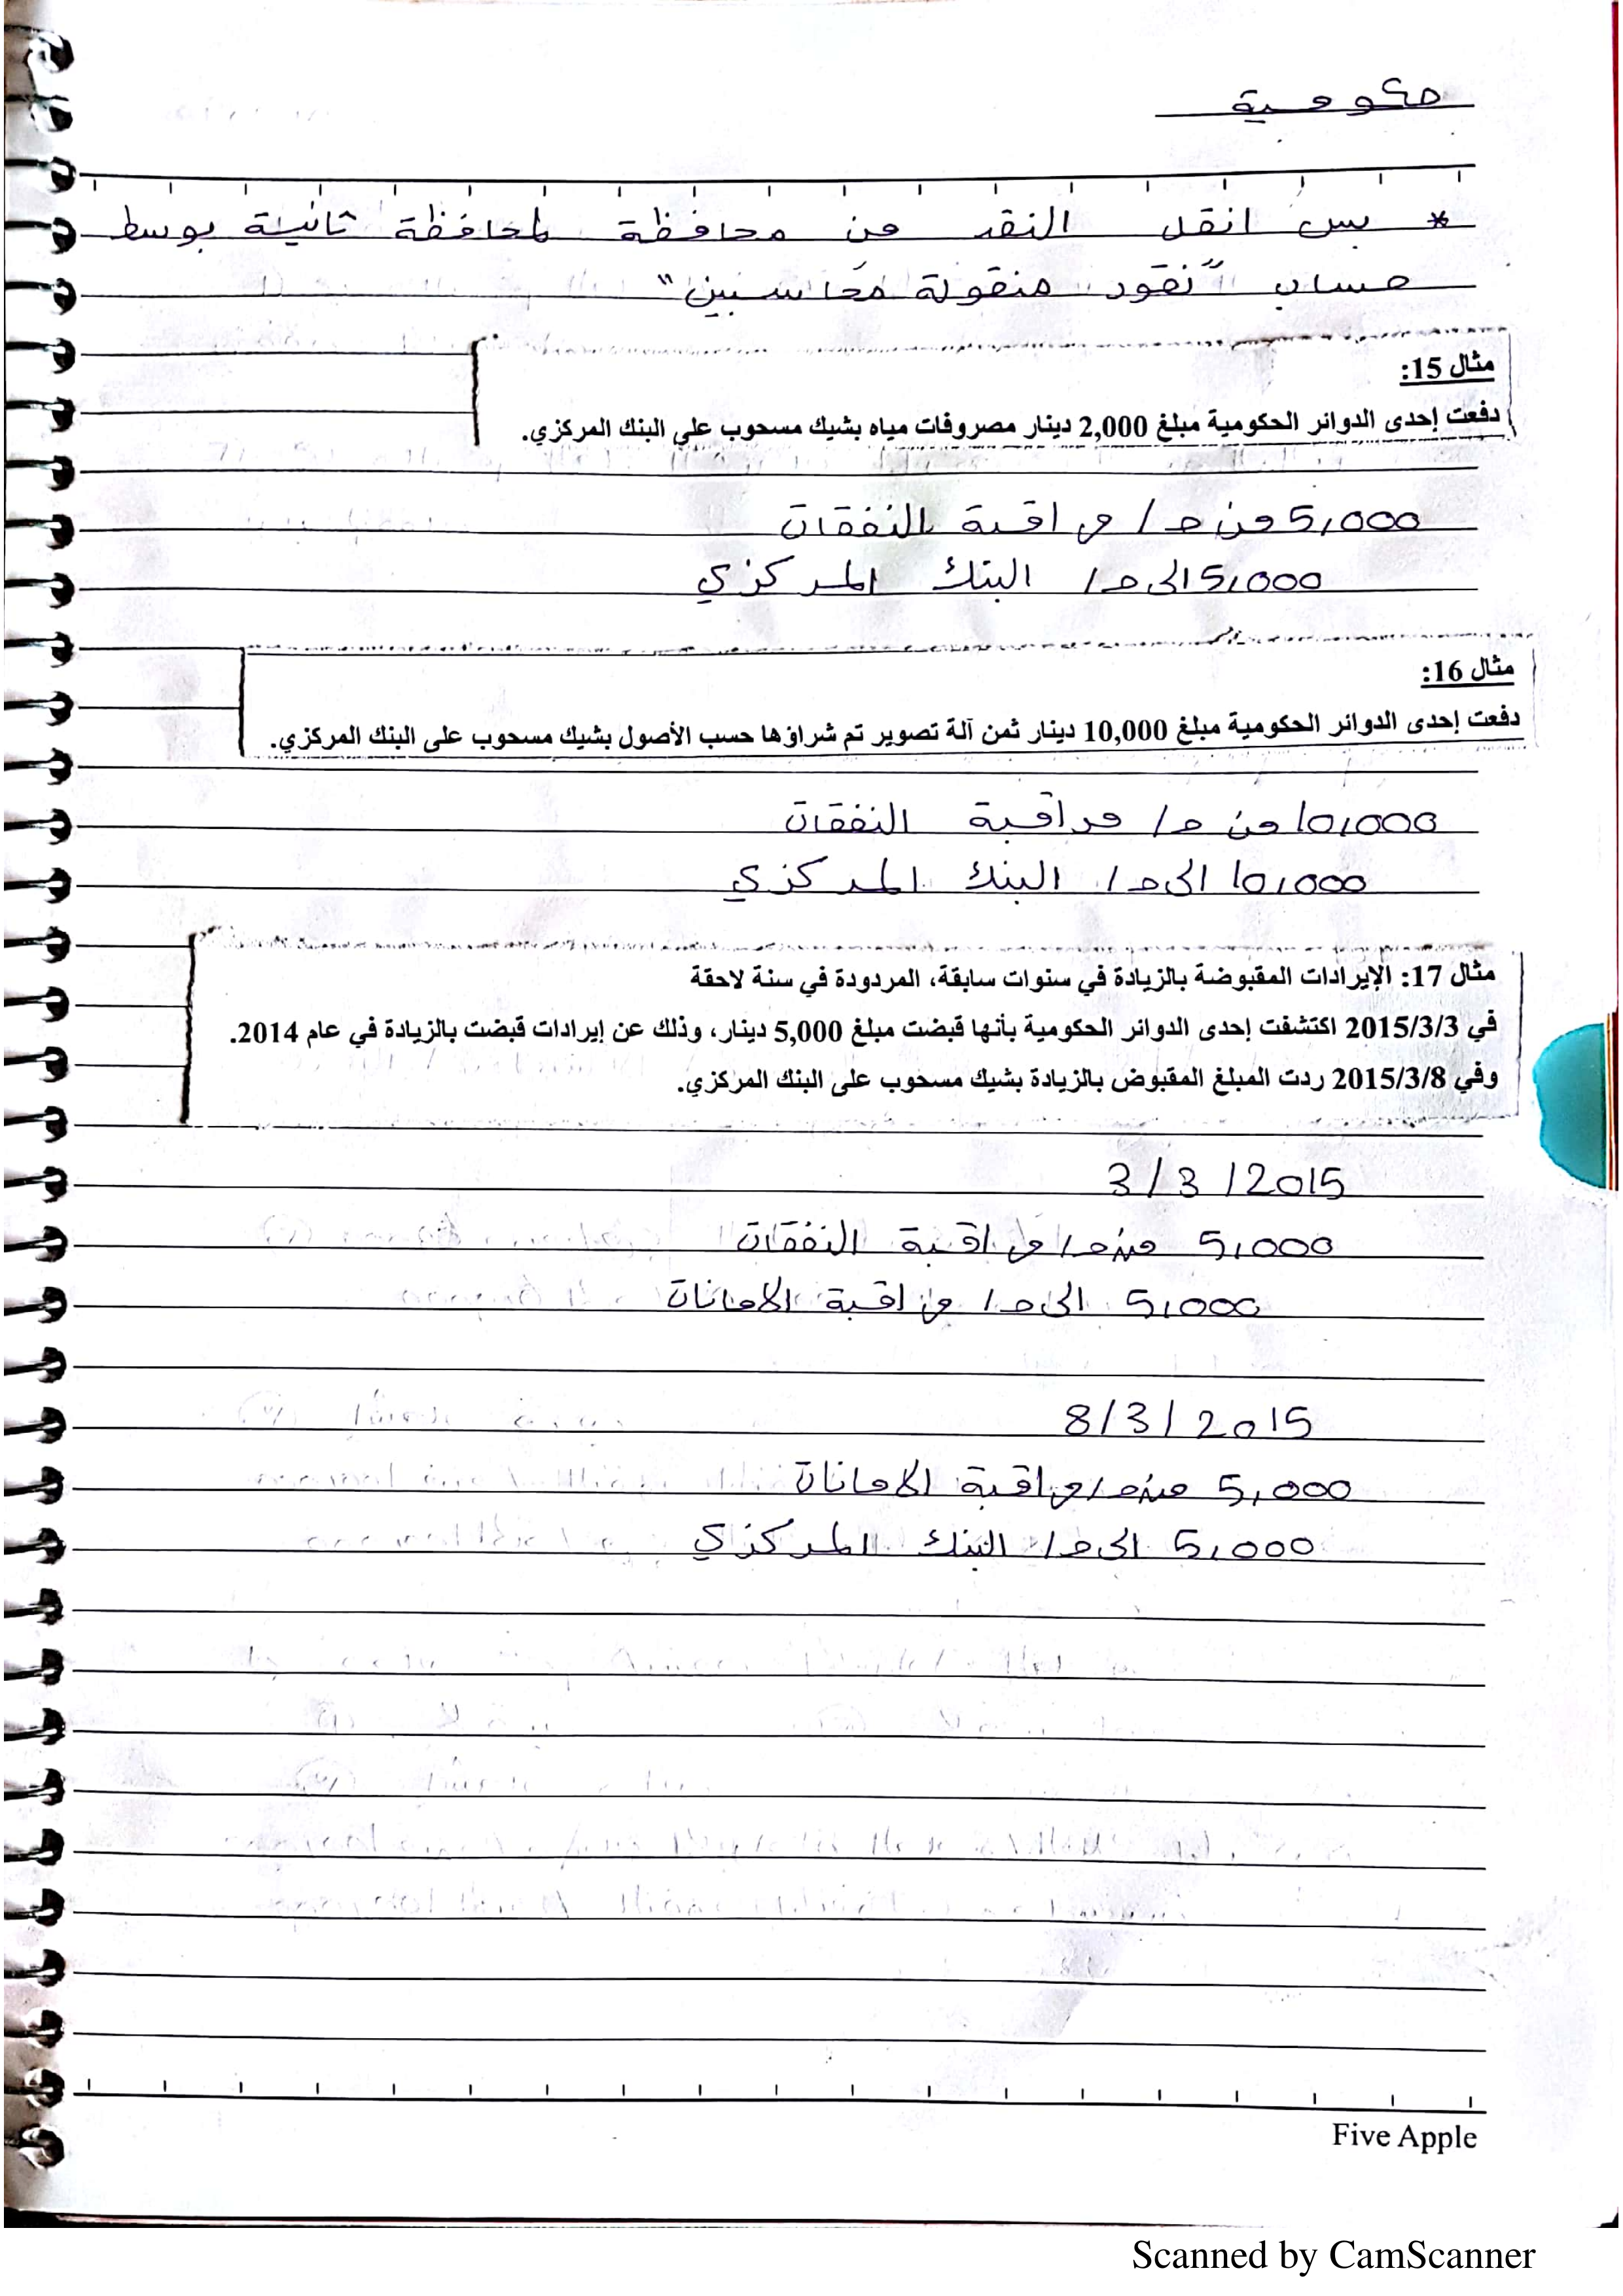 حكومية
* بس انقل النقد من محافظة لمحافظة ثانية بوسط
حساب "نقود منقولة محاسبين"
مثال 15:
دفعت إحدى الدوائر الحكومية مبلغ 2,000 دينار مصروفات مياه بشيك مسحوب على البنك المركزي.
5,000 من ح/ مراقبة النفقات
5,000 الى ح/ البنك المركزي
مثال 16:
دفعت إحدى الدوائر الحكومية مبلغ 10,000 دينار ثمن آلة تصوير تم شراؤها حسب الأصول بشيك مسحوب على البنك المركزي.
10,000 من ح/ مراقبة النفقات
10,000 الى ح/ البنك المركزي
مثال 17: الإيرادات المقبوضة بالزيادة في سنوات سابقة، المردودة في سنة لاحقة
في 2015/3/3 اكتشفت إحدى الدوائر الحكومية بأنها قبضت مبلغ 5,000 دينار، وذلك عن إيرادات قبضت بالزيادة في عام 2014.
وفي 2015/3/8 ردت المبلغ المقبوض بالزيادة بشيك مسحوب على البنك المركزي.
3/3/2015
5,000 من ح/ مراقبة النفقات
5,000 الى ح/ مراقبة الامانات
8/3/2015
5,000 من ح/ مراقبة الامانات
5,000 الى ح/ البنك المركزي
Five Apple
Scanned by CamScanner